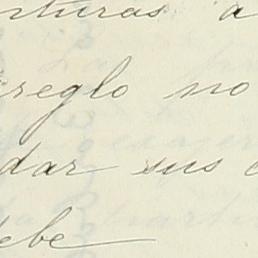 nturas a
reglo no
dar sus
debe